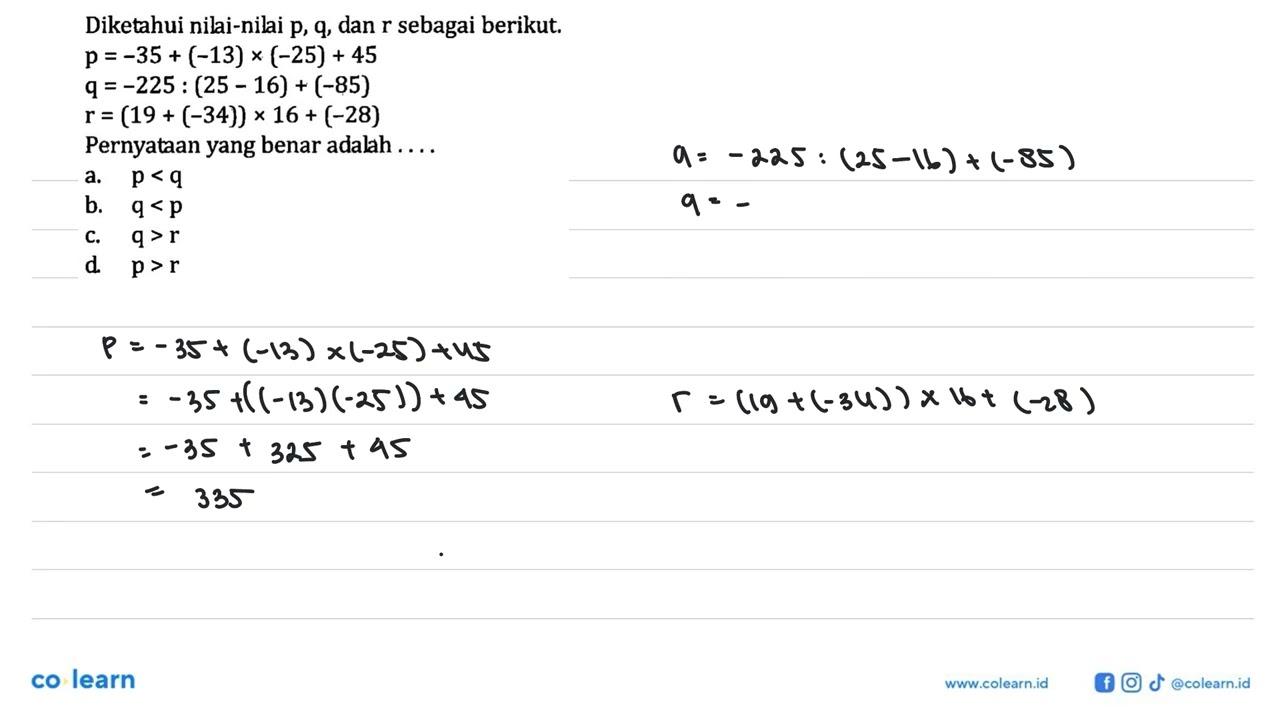 Diketahui nilai-nilai p, q, dan r sebagai berikut.
p = –35 + (–13) × (–25) + 45
q = –225 : (25 – 16) + (–85)
r = (19 + (–34)) × 16 + (–28)
Pernyataan yang benar adalah . . . .
a. p < q
b. q < p
c. q > r
d. p > r
q = -225 : (25-16) + (-85)
q = -
P = -35 + (-13) × (-25) + 45
= -35 + ((-13)(-25)) + 45
= -35 + 325 + 45
= 335
r = (19 + (-34)) × 16 + (-28)
co learn
www.colearn.id
@colearn.id